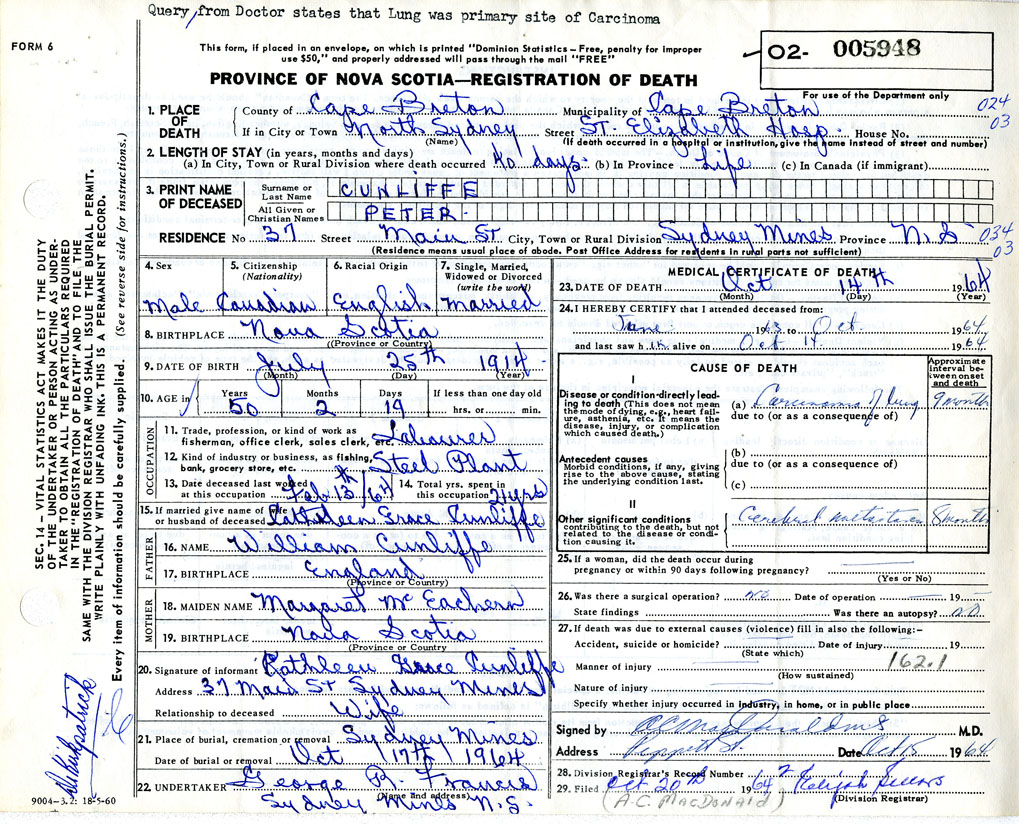 Query, from Doctor states that Lung was primary site of Carcinoma
FORM 6
This form, if placed in an envelope, on which is printed "Dominion Statistics – Free, penalty for improper
use $50," and properly addressed will pass through the mail "FREE"
O2- 005948
For use of the Department only
PROVINCE OF NOVA SCOTIA—REGISTRATION OF DEATH
1. PLACE OF DEATH
County of Cape Breton Municipality of Cape Breton
024
03
If in City or Town North Sydney Street St. Elizabeth Hosp. House No.
(Name) (If death occurred in a hospital or institution, give the name instead of street and number)
2. LENGTH OF STAY (in years, months and days)
(a) In City, Town or Rural Division where death occurred 40 days (b) In Province Life (c) In Canada (if immigrant)
3. PRINT NAME OF DECEASED
Surname or Last Name CUNLIFFE
All Given or Christian Names PETER
RESIDENCE No 37 Street Main St City, Town or Rural Division Sydney Mines Province N.S
034
03
(Residence means usual place of abode. Post Office Address for residents in rural parts not sufficient)
4. Sex
Male
5. Citizenship (Nationality)
Canadian
6. Racial Origin
English
7. Single, Married, Widowed or Divorced (write the word)
Married
8. BIRTHPLACE Nova Scotia
(Province or Country)
9. DATE OF BIRTH July 25th 1914
(Month) (Day) (Year)
10. AGE in Years Months Days If less than one day old
50 2 19 hrs. or min.
OCCUPATION
11. Trade, profession, or kind of work as
fisherman, office clerk, sales clerk, etc. Labourer
12. Kind of industry or business, as fishing,
bank, grocery store, etc. Steel Plant
13. Date deceased last worked at this occupation Feb 13th/64
14. Total yrs. spent in this occupation 21 yrs
15. If married give name of wife
or husband of deceased Kathleen Grace Cunliffe
FATHER
16. NAME William Cunliffe
17. BIRTHPLACE England
(Province or Country)
MOTHER
18. MAIDEN NAME Margaret McEachern
19. BIRTHPLACE Nova Scotia
(Province or Country)
20. Signature of informant Kathleen Grace Cunliffe
Address 37 Main St Sydney Mines
Relationship to deceased Wife
21. Place of burial, cremation or removal Sydney Mines
Date of burial or removal Oct 17th 1964
22. UNDERTAKER George R. Francis
(Name and address)
Sydney Mines N.S.
MEDICAL CERTIFICATE OF DEATH
23. DATE OF DEATH Oct 14th 1964
(Month) (Day) (Year)
24. I HEREBY CERTIFY that I attended deceased from:
June 1963 to Oct. 1964
and last saw him alive on Oct 14 1964
CAUSE OF DEATH
Approximate interval between onset and death
I
Disease or condition directly leading to death (This does not mean the mode of dying, e.g., heart failure, asthenia, etc. It means the disease, injury, or complication which caused death.)
(a) Carcinoma of lung 9 months
due to (or as a consequence of)
Antecedent causes
Morbid conditions, if any, giving rise to the above cause, stating the underlying condition last.
(b)
due to (or as a consequence of)
(c)
II
Other significant conditions
contributing to the death, but not related to the disease or condition causing it.
Cerebral metastases 8 months
25. If a woman, did the death occur during
pregnancy or within 90 days following pregnancy?
(Yes or No)
26. Was there a surgical operation? no Date of operation 19
State findings Was there an autopsy? no
27. If death was due to external causes (violence) fill in also the following:–
Accident, suicide or homicide? Date of injury 19
(State which)
162.1
Manner of injury
(How sustained)
Nature of injury
Specify whether injury occurred in industry, in home, or in public place
Signed by M.D.
Address Date Oct 15 1964
28. Division Registrar's Record Number
29. Filed Oct 20th 1964
(Division Registrar)
(A.C. MacDONALD)
SEC. 14 – VITAL STATISTICS ACT MAKES IT THE DUTY
OF THE UNDERTAKER OR PERSON ACTING AS UNDER-
TAKER TO OBTAIN ALL THE PARTICULARS REQUIRED
IN THE "REGISTRATION OF DEATH" AND TO FILE THE
SAME WITH THE DIVISION REGISTRAR WHO SHALL ISSUE THE BURIAL PERMIT.
WRITE PLAINLY WITH UNFADING INK. THIS IS A PERMANENT RECORD.
Every item of information should be carefully supplied. (See reverse side for instructions.)
9004–3.2: 18-5-60